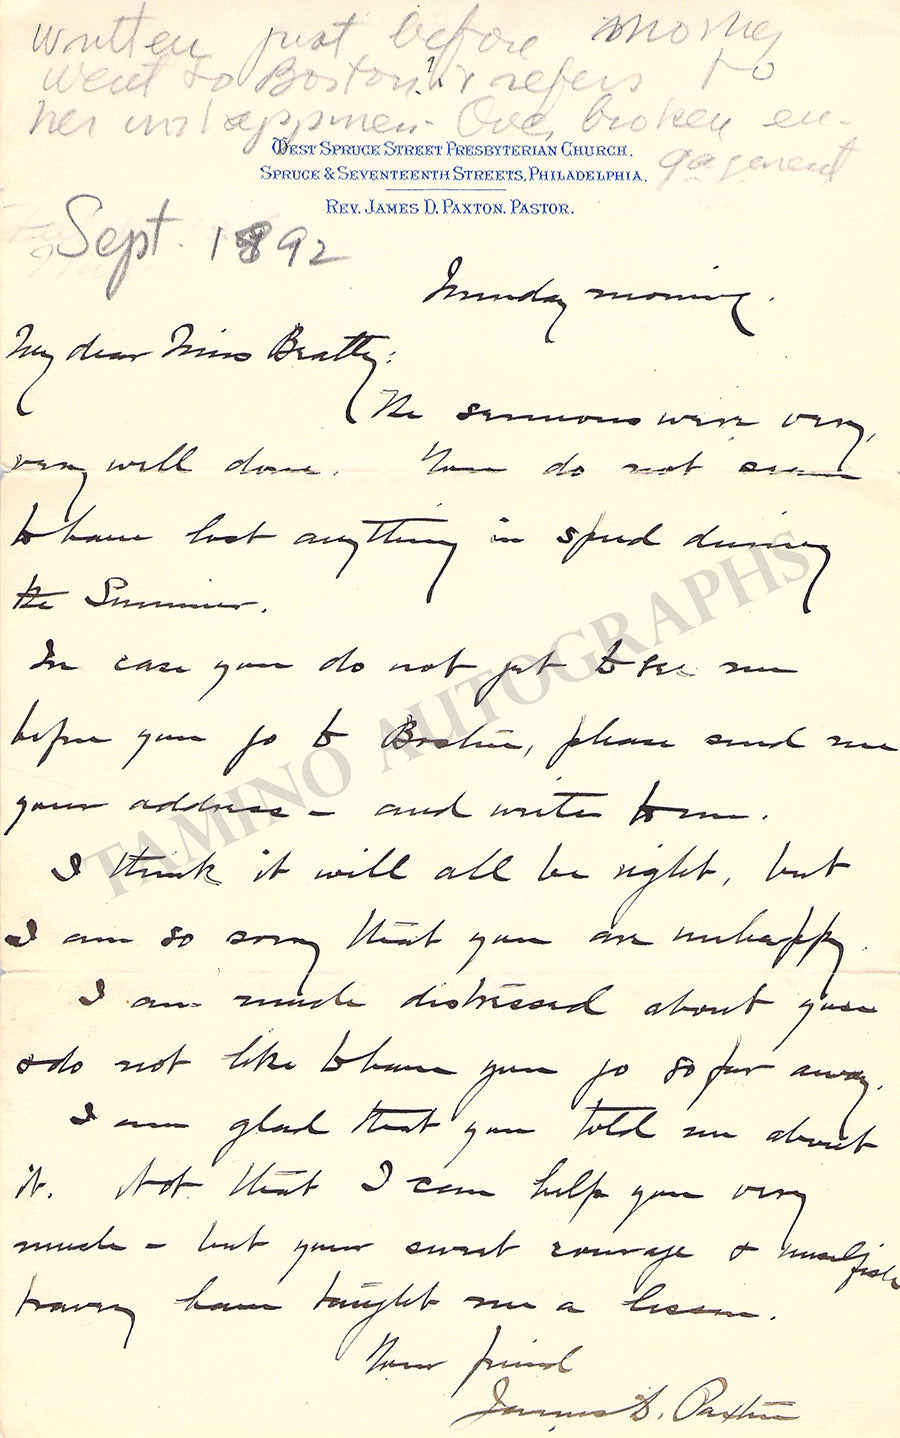 written just before Mother
went to Boston & refers to
her disappmen- Over broken en-
gagement
WEST SPRUCE STREET PRESBYTERIAN CHURCH.
SPRUCE & SEVENTEENTH STREETS, PHILADELPHIA.
REV. JAMES D. PAXTON. PASTOR.
Sept. 1892
morning.
My dear Miss Beatty:
The sermons were very,
very well done. You do not seem
to have lost anything in speed during
the Summer.
In case you do not get to see me
before you go to Boston, please send me
your address – and write to me.
I think it will all be right, but
I am so sorry that you are unhappy.
I am much distressed about you
& do not like to have you go so far away.
I am glad that you told me about
it. Not that I can help you very
much – but your sweet courage & unselfish
bravery have taught me a lesson.
Your friend
James D. Paxton
TAMINO AUTOGRAPHS